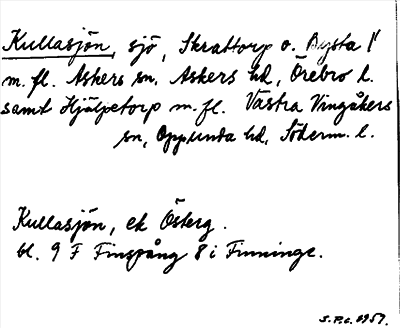 Kullasjön, sjö, Skrattorp o. Bysta
m. fl. Askers sn, Askers hd, Örebro l.
samt Hjälpetorp m. fl. Västra Vingåkers
sn, Oppunda hd, Söderm. l.
Kullasjön, ek Österg.
bl. 9 F Finspång 8 i Finninge.
S.P.c. 1957.